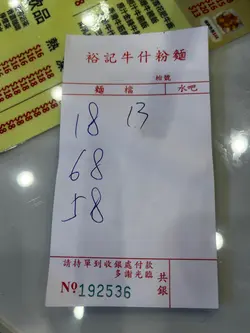 裕記牛什粉麵
枱號
麵檔 水吧
18 13
68
58
請持單到收銀處付款
多謝光臨
共銀
No 192536
品
熱